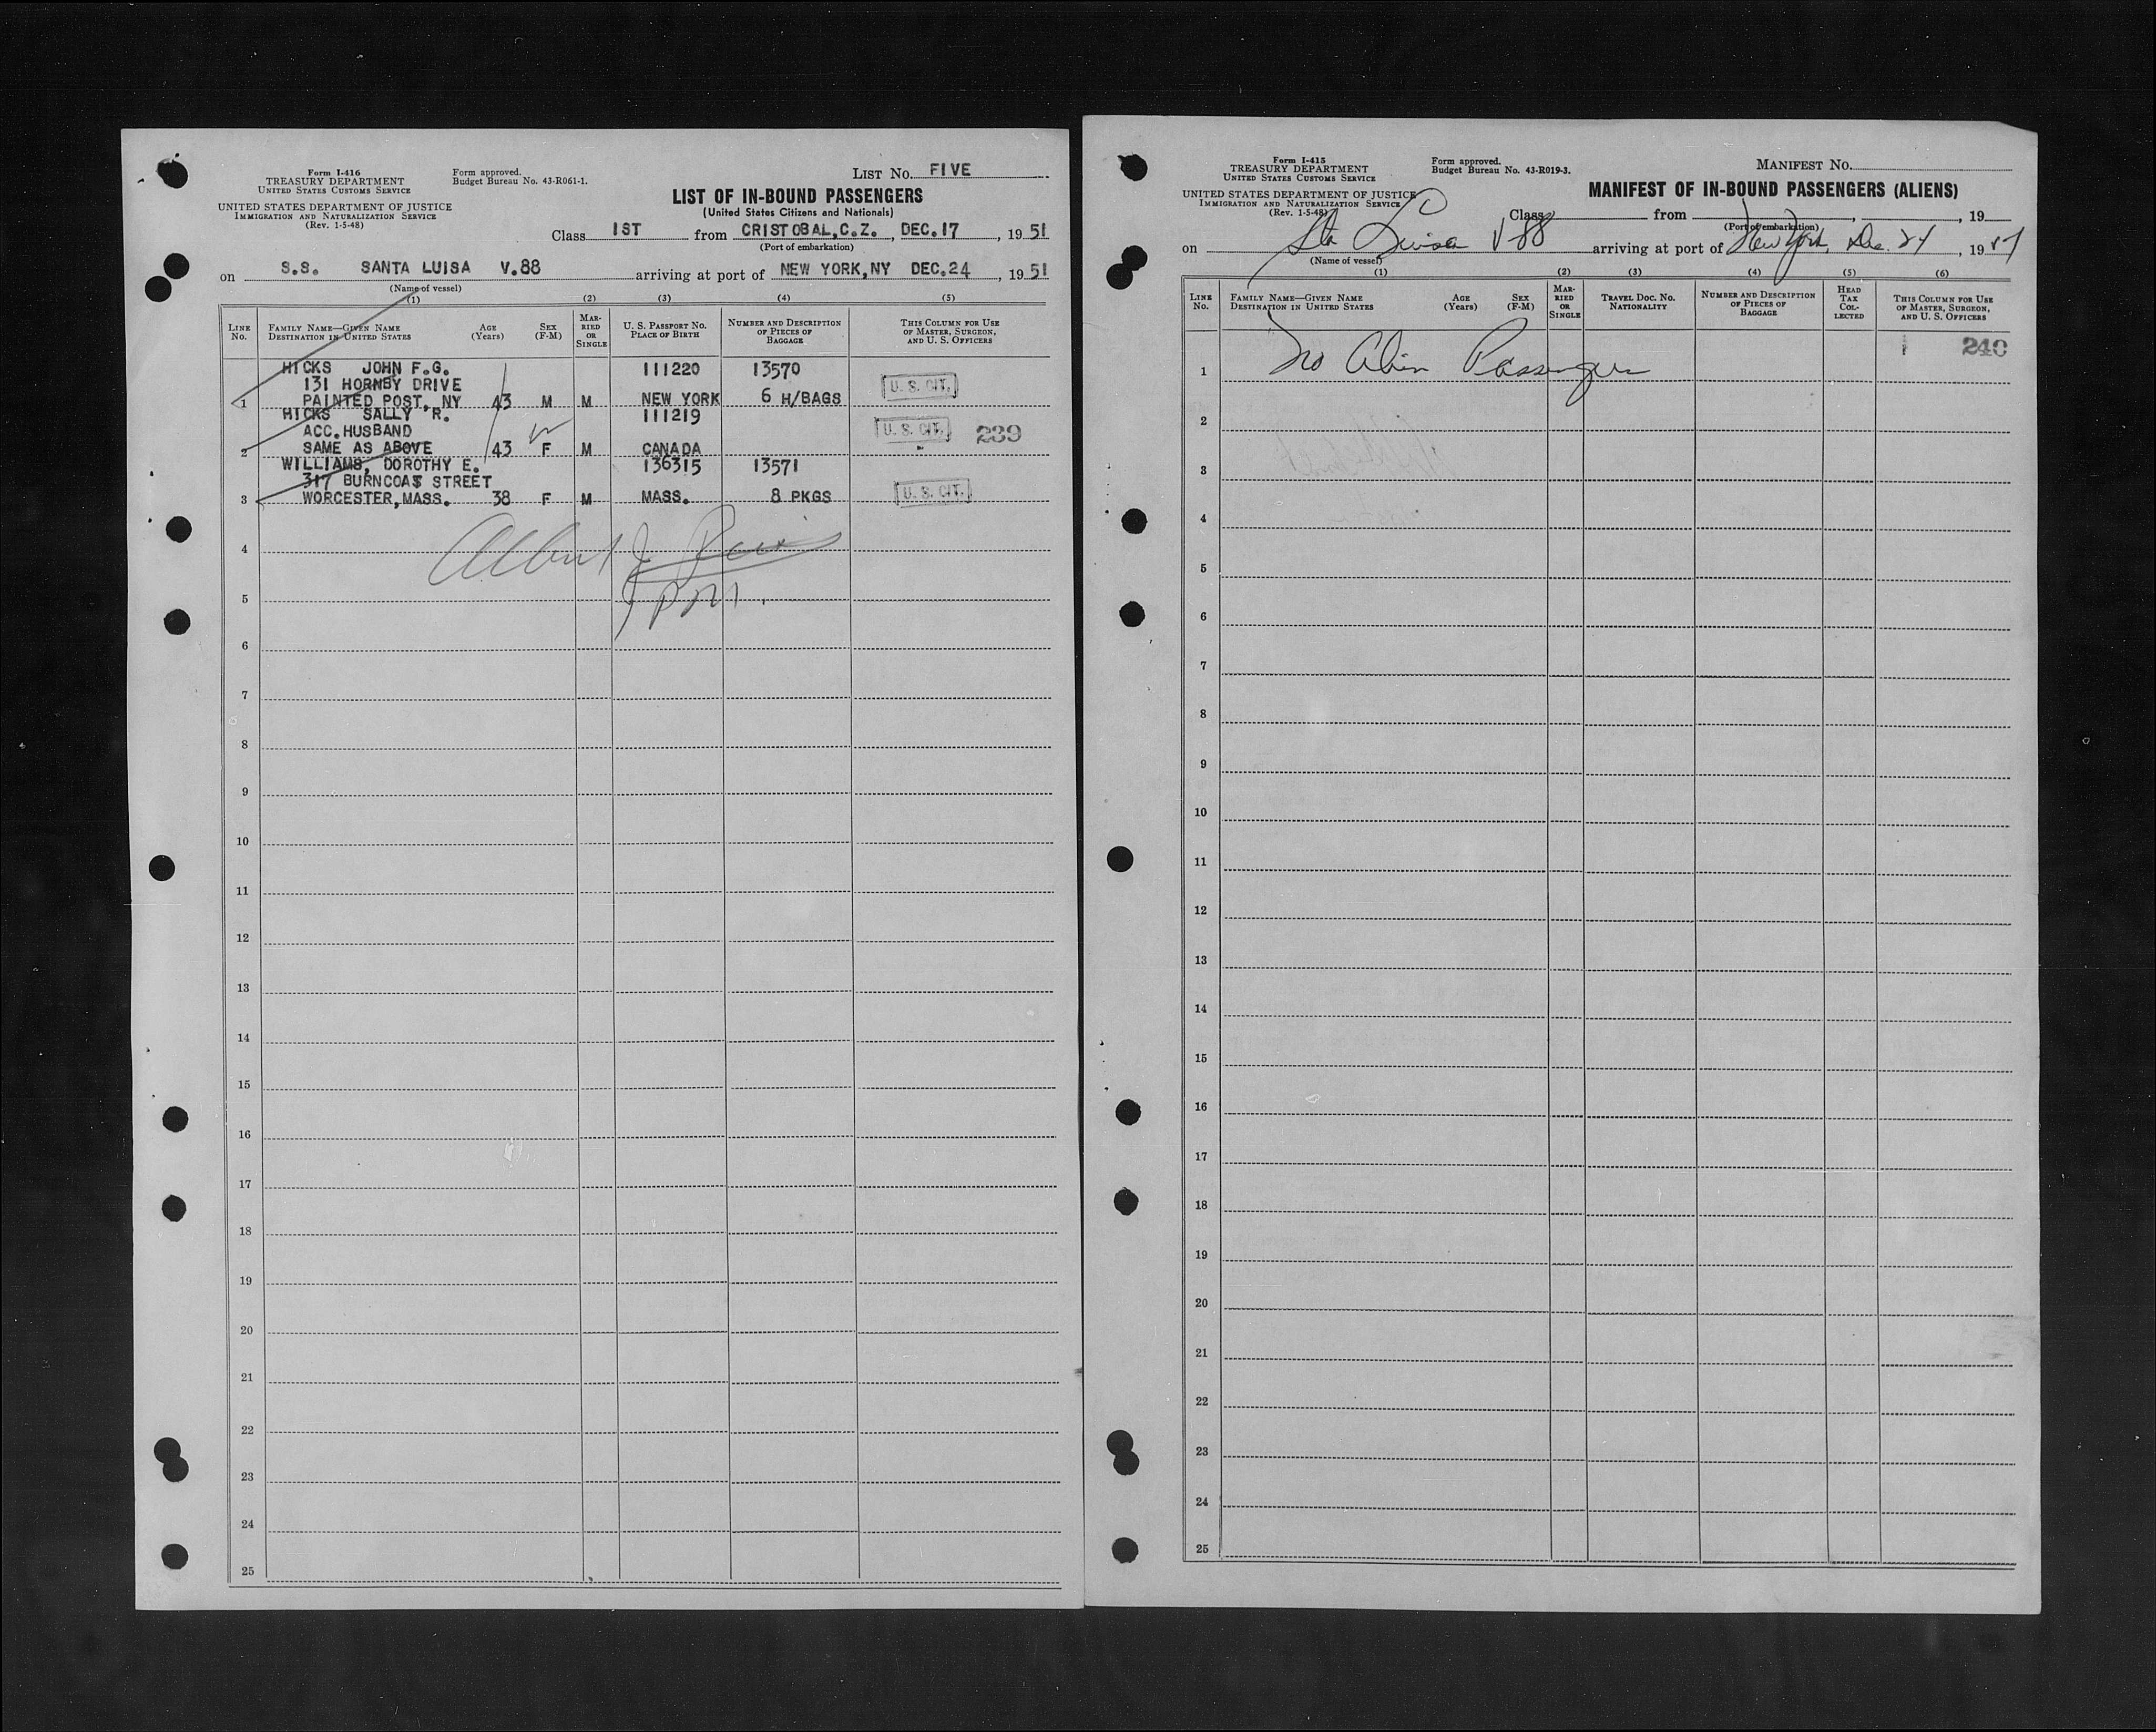 Form I-416
TREASURY DEPARTMENT
UNITED STATES CUSTOMS SERVICE
UNITED STATES DEPARTMENT OF JUSTICE
IMMIGRATION AND NATURALIZATION SERVICE
(Rev. 1-5-48)
Form approved.
Budget Bureau No. 43-R061-1.
LIST No. FIVE
LIST OF IN-BOUND PASSENGERS
(United States Citizens and Nationals)
Class 1ST from CRISTOBAL,C.Z., DEC.17, 1951
(Port of embarkation)
on S.S. SANTA LUISA V.88 arriving at port of NEW YORK,NY DEC.24, 1951
(Name of vessel)
(1) (2) (3) (4) (5)
LINE No.
FAMILY NAME—GIVEN NAME
DESTINATION IN UNITED STATES
AGE (Years)
SEX (F-M)
MARRIED OR SINGLE
U. S. PASSPORT NO.
PLACE OF BIRTH
NUMBER AND DESCRIPTION OF PIECES OF BAGGAGE
THIS COLUMN FOR USE OF MASTER, SURGEON, AND U. S. OFFICERS
HICKS JOHN F.G. 111220 13570
131 HORNBY DRIVE U. S. CIT.
1 PAINTED POST, NY 43 M M NEW YORK 6 H/BAGS
HICKS SALLY R. 111219
ACC.HUSBAND U. S. CIT. 239
2 SAME AS ABOVE 43 F M CANADA
WILLIAMS, DOROTHY E. 136315 13571
317 BURNCOAT STREET
3 WORCESTER,MASS. 38 F M MASS. 8 PKGS U. S. CIT.
4
Albert J
5
6
7
8
9
10
11
12
13
14
15
16
17
18
19
20
21
22
23
24
25
Form I-415
TREASURY DEPARTMENT
UNITED STATES CUSTOMS SERVICE
UNITED STATES DEPARTMENT OF JUSTICE
IMMIGRATION AND NATURALIZATION SERVICE
(Rev. 1-5-48)
Form approved.
Budget Bureau No. 43-R019-3.
MANIFEST No.
MANIFEST OF IN-BOUND PASSENGERS (ALIENS)
Class from , , 19
(Port of embarkation)
on Sta Luisa V-88 arriving at port of New York, Dec. 24, 19
(Name of vessel)
(1) (2) (3) (4) (5) (6)
LINE No.
FAMILY NAME—GIVEN NAME
DESTINATION IN UNITED STATES
AGE (Years)
SEX (F-M)
MARRIED OR SINGLE
TRAVEL DOC. NO.
NATIONALITY
NUMBER AND DESCRIPTION OF PIECES OF BAGGAGE
HEAD TAX COLLECTED
THIS COLUMN FOR USE OF MASTER, SURGEON, AND U. S. OFFICERS
240
1 No Alien Passengers
2
3
4
5
6
7
8
9
10
11
12
13
14
15
16
17
18
19
20
21
22
23
24
25